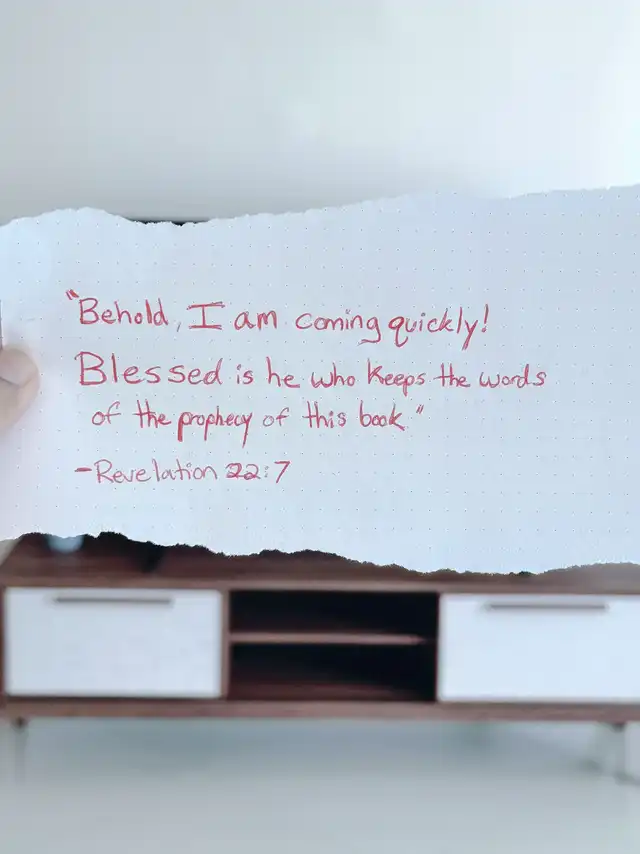 "Behold, I am coming quickly!
Blessed is he who keeps the words
of the prophecy of this book"
-Revelation 22:7